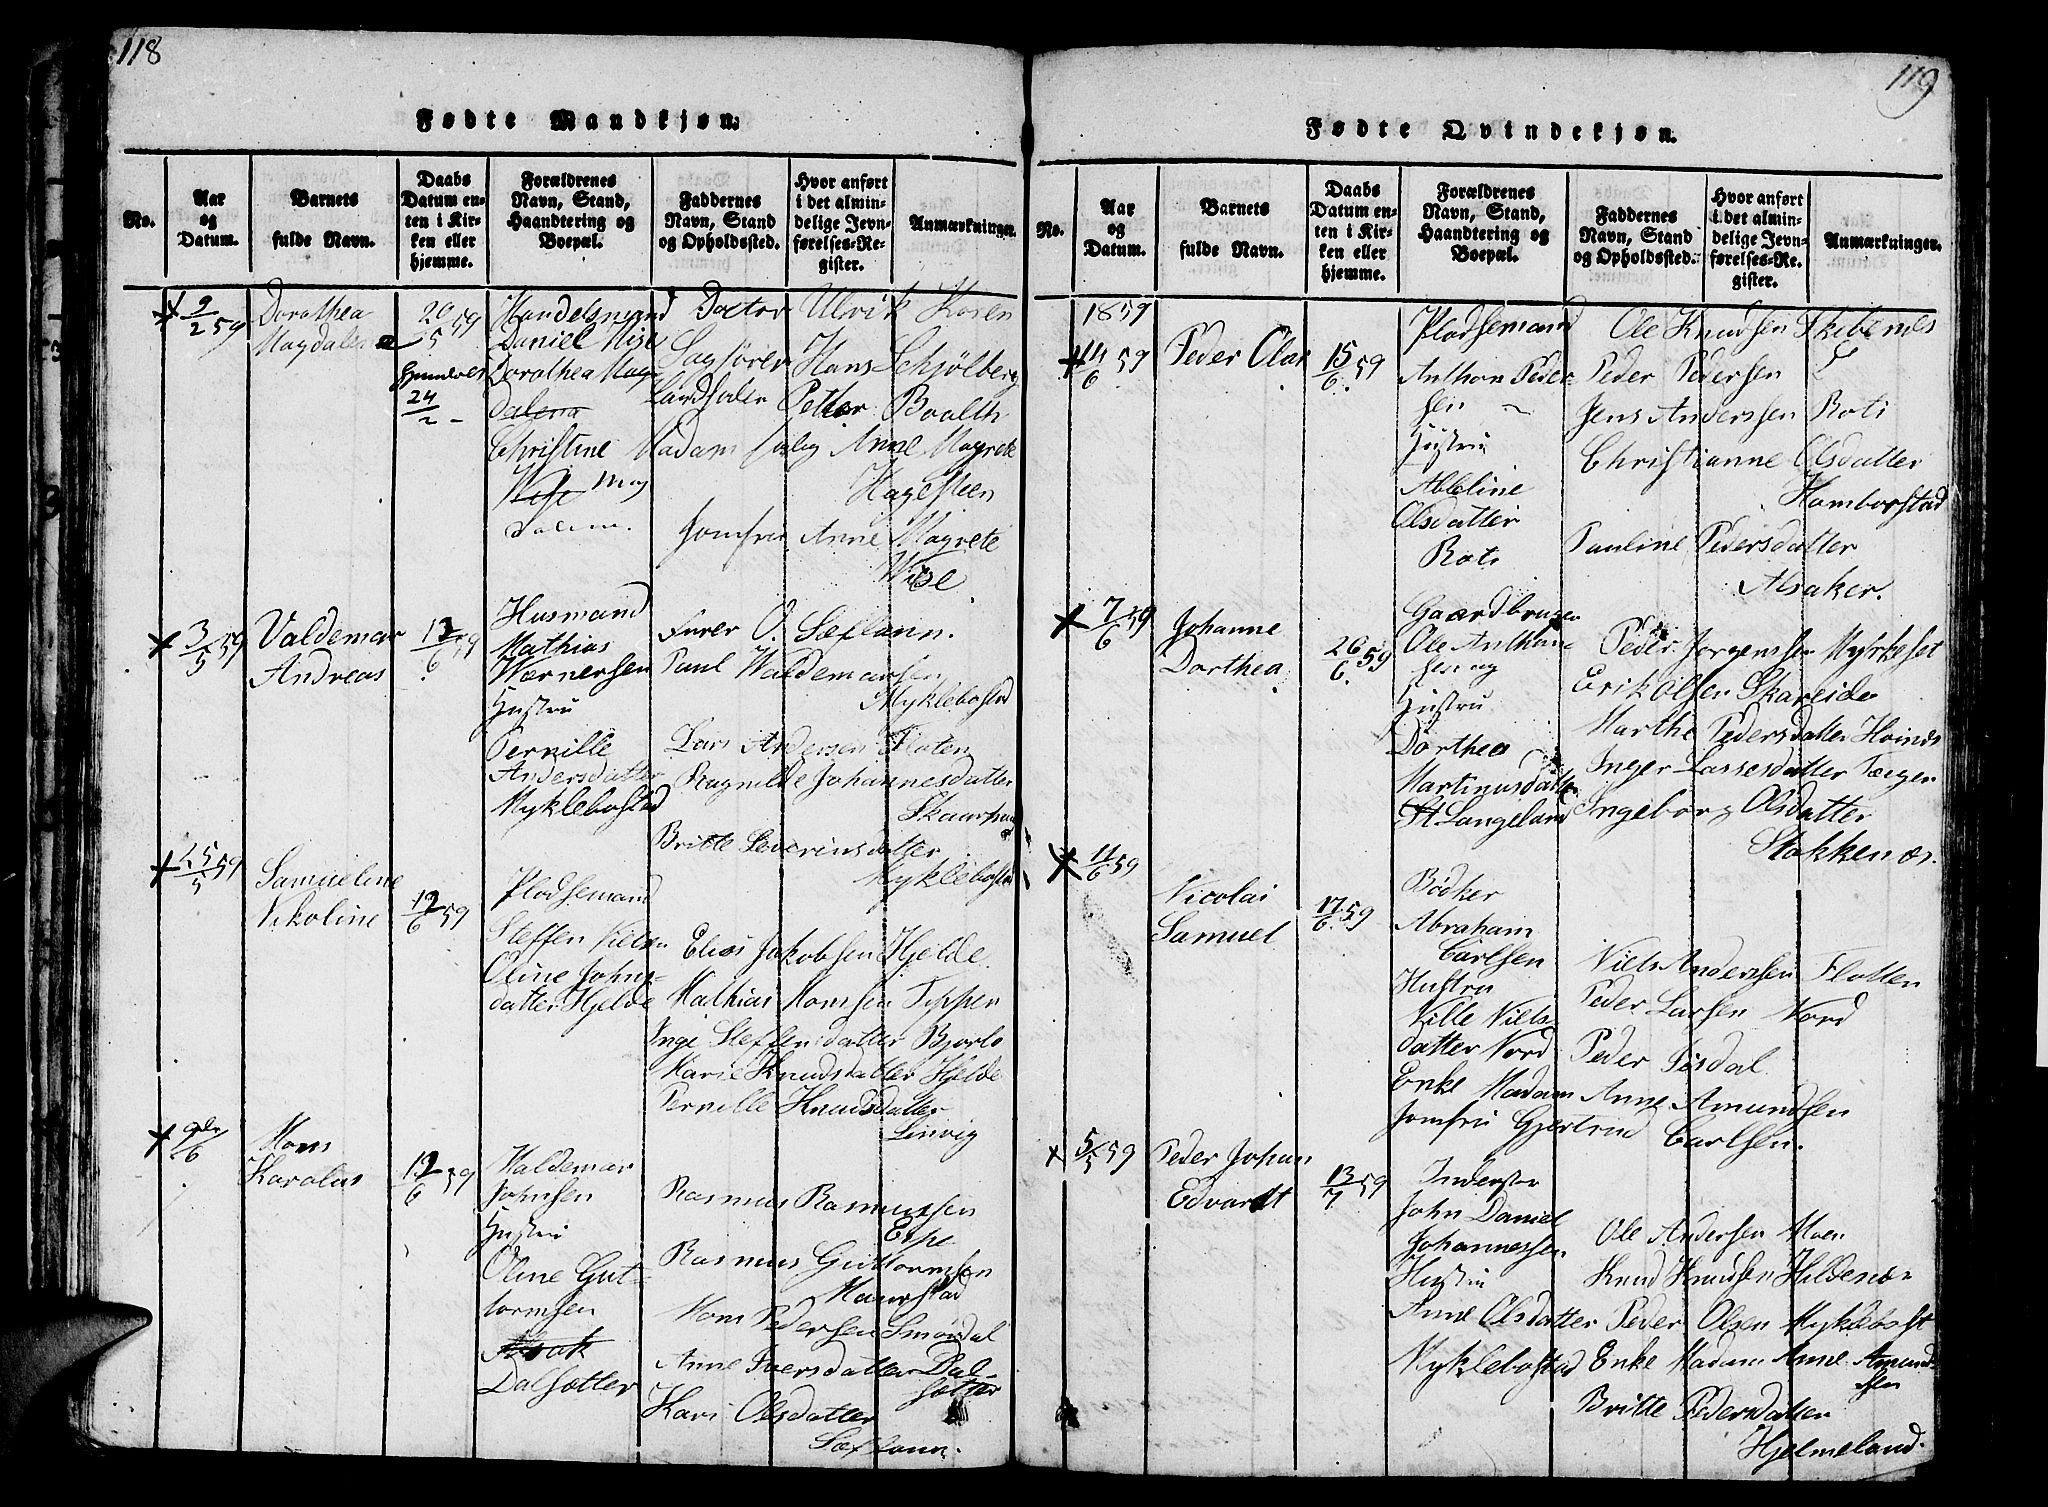 118
Fødte Mandkjøn.
No.
Aar og Datum.
Barnets fulde Navn.
Daabs Datum enten i Kirken eller hjemme.
Forældrenes Navn, Stand, Haandtering og Boepæl.
Faddernes Navn, Stand og Opholdssted.
Hvor anført i det almindelige Jevnførelses-Register.
Anmærkninger.
9/2 59
Dorothea
Magdalena
20/5 59
24/2
Handelsmand
Daniel Wise
Dorothea Mag
dalena
Christine
Wise Mag
dalena.
Doctor Ulrik Koren
Sagfører Hans Schjølberg
Landhandler Petter Boalth
Madam Anne Magrete
Hagesteen
Jomfru Anne Magrete
Wise
3/5 59
Valdemar
Andreas
12/6 59
Husmand
Mathias
Wærnersen
Hustru
Pernille
Andersdatter
Myklebostad
Furer O. Sæfland.
Paul Waldemarsen
Myklebostad
Lars Andersen Floten
Ragnilde Johannesdatter
Skaarhaug
Britte Severinsdatter
Myklebostad
25/5 59
Samueline
Nikoline
12/6 59
Plodsemand
Steffen Nielsen
Oline Johns-
datter Hjelde
Elias Jakobsen Hjelde
Mathias Monsen Tippen
Inge Steffensdatter Bjorlo
Marie Knudsdatter Hjelde
Pernille Knudsdatter
Linvig
9de/6
Mons
Karolus
12/6 59
Valdemar
Johnsen
Hustru
Oline Gut-
tormsen
Dalsætter
Rasmus Rasmussen
Espe
Rasmus Guttormsen
Maurstad
Mons Pedersen Smørdal
Anne Iversdatter Dal-
sætter
Kari Olsdatter
Sæfland.
119
Fødte Qvindekjøn.
No.
Aar og Datum.
Barnets fulde Navn.
Daabs Datum enten i Kirken eller hjemme.
Forældrenes Navn, Stand, Haandtering og Boepæl.
Faddernes Navn, Stand og Opholdssted.
Hvor anført i det almindelige Jevnførelses-Register.
Anmærkninger.
1859
14/6 59
Peder Olai
15/6 59
Plodsemand
Anthon Peder-
sen
Hustru
Abeline
Olsdatter
Roti
Ole Knudsen Skibenes
Peder Pedersen
Jens Anderssen Roti
Christianne Olsdatter
Hamborstad
Pauline Pedersdatter
Alsaker.
7/6 59
Johanne
Dorthea
26/6 59
Gaardbruger
Ole Anthon-
sen og
Hustru
Dorthea
Martinusdatter
Langeland
Peder Jorgenssen Myrkeset
Erik Olsen Skareide
Marthe Pedersdatter Hvines
Inger Lassesdatter
Ingeborg Olsdatter
Stokkenæs.
11/6 59
Nicolai
Samuel
17/6 59
Bødker
Abraham
Carlsen
Hustru
Nille Niels-
datter Nord
Niels Anderssen Flotten
Peder Larsen Nord
Peder Tøsdal
Enke Madam Anne Amundsen
Jomfru Gjertrud Carlsen.
5/5 59
Peder Johan
Edvardt
13/7 59
Inderster
John Daniel
Johannessen
Hustru
Anne Olsdatter
Myklebostad
Ole Andersen Moen
Knud Knudsen Hildenæs
Peder Olsen Myklebost
Enke Madam Anne Amund-
sen
Britte Pedersdatter
Hjelmeland.